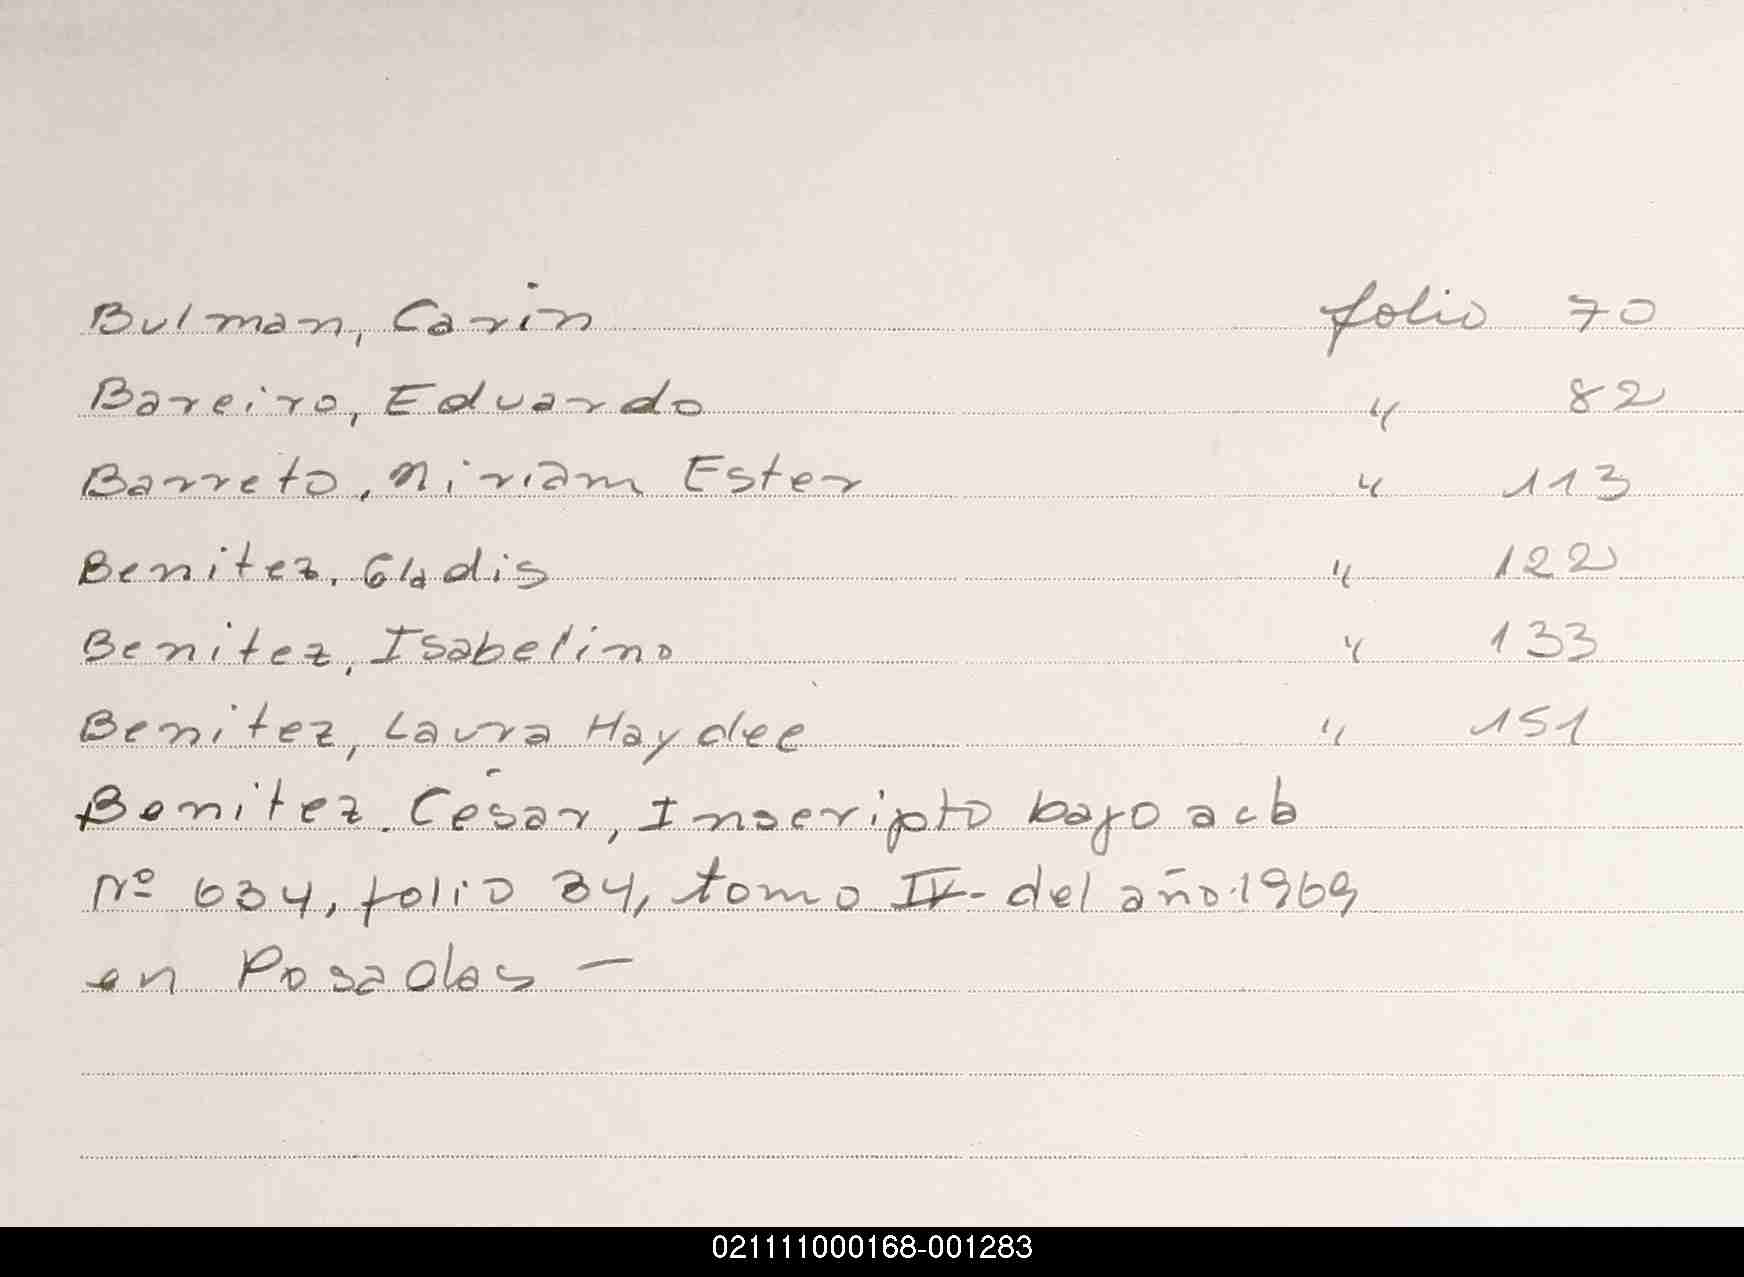 Bulman, Carin folio 70
Bareiro, Eduardo " 82
Barreto, Miriam Ester " 113
Benitez, Gladis " 122
Benitez, Isabelino " 133
Benitez, Laura Haydee " 151
Benitez. César, Inscripto bajo acta
Nº 634, folio 34, tomo IV- del año 1969
en Posadas -
021111000168-001283